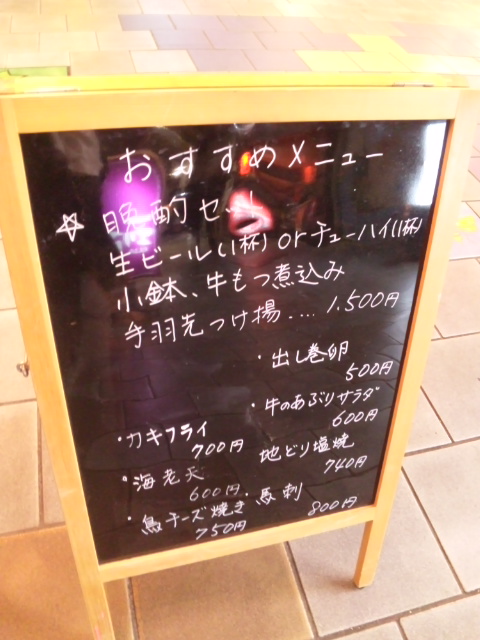 おすすめメニュー
☆ 晩酌セット
生ビール(1杯)orチューハイ(1杯)
小鉢、牛もつ煮込み
手羽先つけ揚....1.500円
・出し巻卵
500円
・牛のあぶりサラダ
600円
・カキフライ
700円
地どり塩焼
740円
・海老天
600円
・馬刺
800円
・鳥チーズ焼き
750円